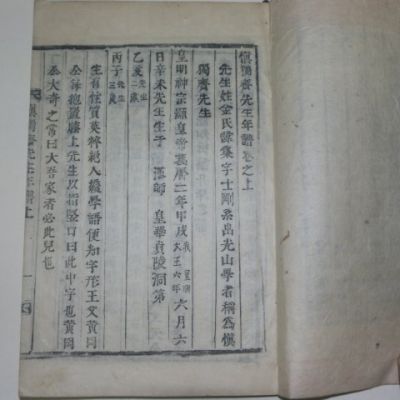 愼獨齋先生年譜卷之上
先生姓金氏諱集字士剛系出光山學者稱爲愼
獨齋先生
皇明神宗顯皇帝萬曆二年甲戌我大王六年六月六
日辛未先生生于漢師皇華貞陵洞第
乙亥先生二歲
丙子先生三歲
生有性質英粹絶人纔學語便知字形王父黃岡
公每抱置膝上先生以指口曰此中字也黃岡
公大奇之常曰大吾家者必此兒也
愼獨齋先生年譜上 一